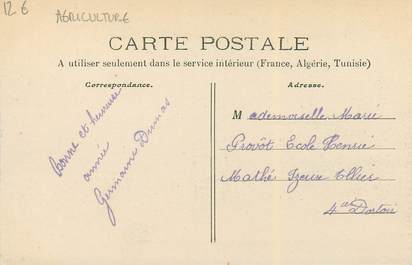 12 €
AGRICULTURE
CARTE POSTALE
A utiliser seulement dans le service intérieur (France, Algérie, Tunisie)
Correspondance.
Adresse.
Bonne et heureuse
année
Germaine Dumas
Mademoiselle Marie
Provôt Ecole Henri
Mathé Yzeure Allier
4